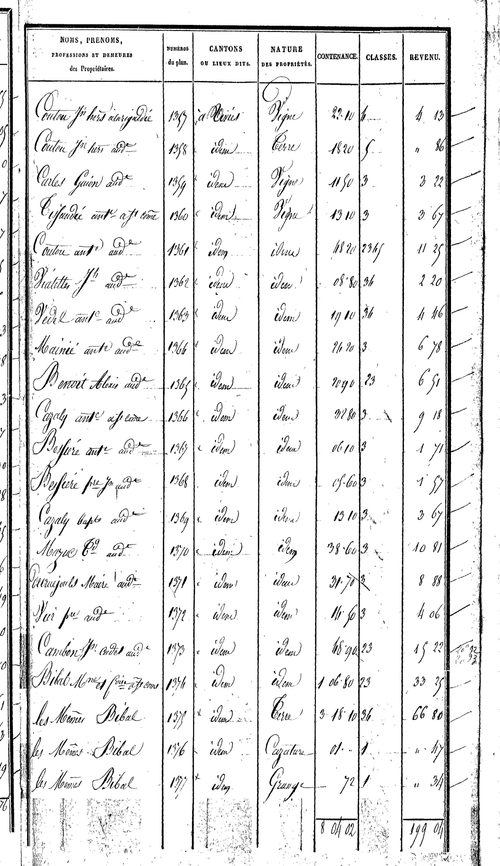 NOMS, PRÉNOMS, PROFESSIONS ET DEMEURES des Propriétaires. NUMÉROS du plan. CANTONS OU LIEUX DITS. NATURE DES PROPRIÉTÉS. CONTENANCE. CLASSES. REVENU.
Couton Jn hers 1357 Vigne 22 10 4 13
Couton Jn hers aude 1358 idem Terre 18 20 5 " 86
Carles aude 1359 idem Vigne 11 50 3 3 22
antne à St Come 1360 idem Vigne 13 10 3 3 67
Couton antne aude 1361 idem idem 48 20 2345 11 25
Jh aude 1362 idem idem 08 80 36 2 20
Vedel antne aude 1363 idem idem 19 10 36 4 46
antne aude 1364 idem idem 24 20 3 6 78
Benoit Alexis aude 1365 idem idem 20 90 23 6 51
Cazaly antne à St Come 1366 idem idem 32 80 3 9 18
Bessiere antne aude 1367 idem idem 06 10 3 1 71
Bessiere pre Jn aude 1368 idem idem 05 60 3 1 57
Cazaly aude 1369 idem idem 13 10 3 3 67
aude 1370 idem idem 38 60 3 10 81
aude 1371 idem idem 31 70 3 8 88
pre aude 1372 idem idem 14 50 3 4 06
Cambon Jn aude 1373 idem idem 48 90 23 15 22
Bibal à St Come 1374 idem idem 1 06 80 23 33 25
les Mêmes Bibal 1375 idem Terre 3 18 10 36 66 80
les Mêmes Bibal 1376 idem 01 1 " 47
les Mêmes Bibal 1377 idem Grange 72 1 " 34
8 04 02 199 04